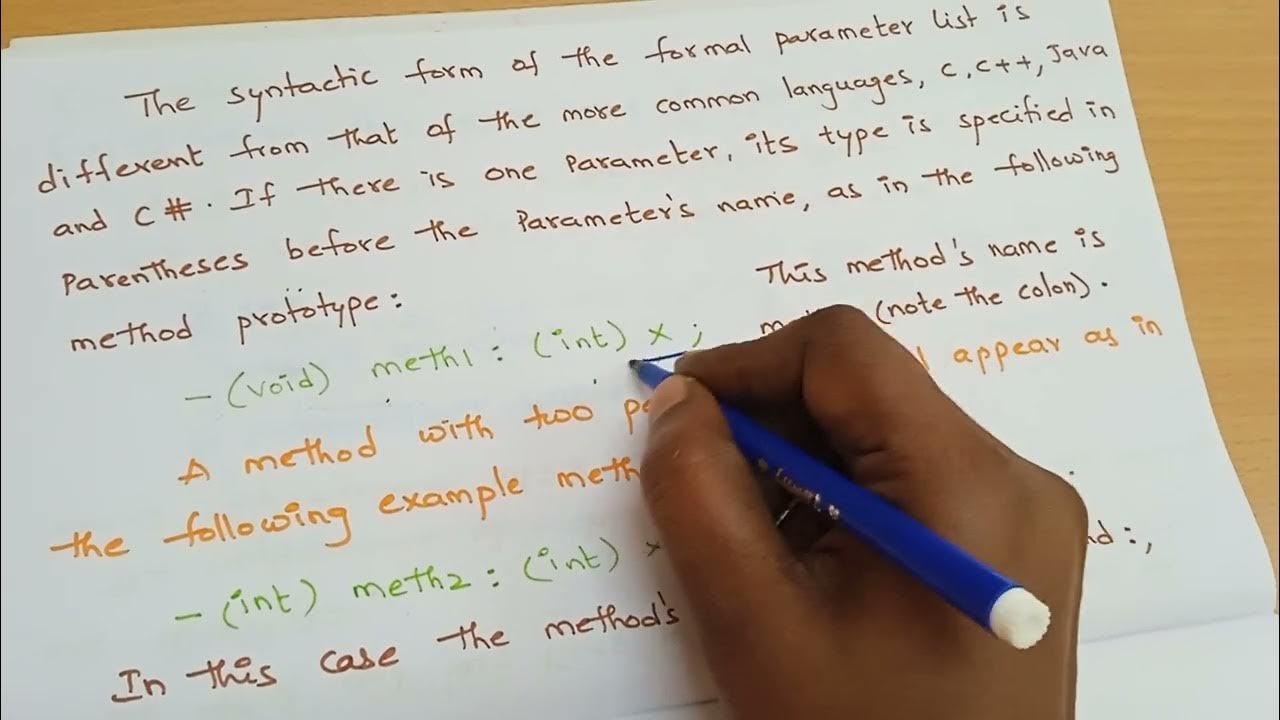 The syntactic form of the formal parameter list is
different from that of the more common languages, C, C++, Java
and C#. If there is one parameter, its type is specified in
Parentheses before the Parameter's name, as in the following
method prototype:
This method's name is
(note the colon).
- (void) meth1 : (int) x ;
A method with two
appear as in
the following example
- (int) meth2 : (int) x
In this case the method's